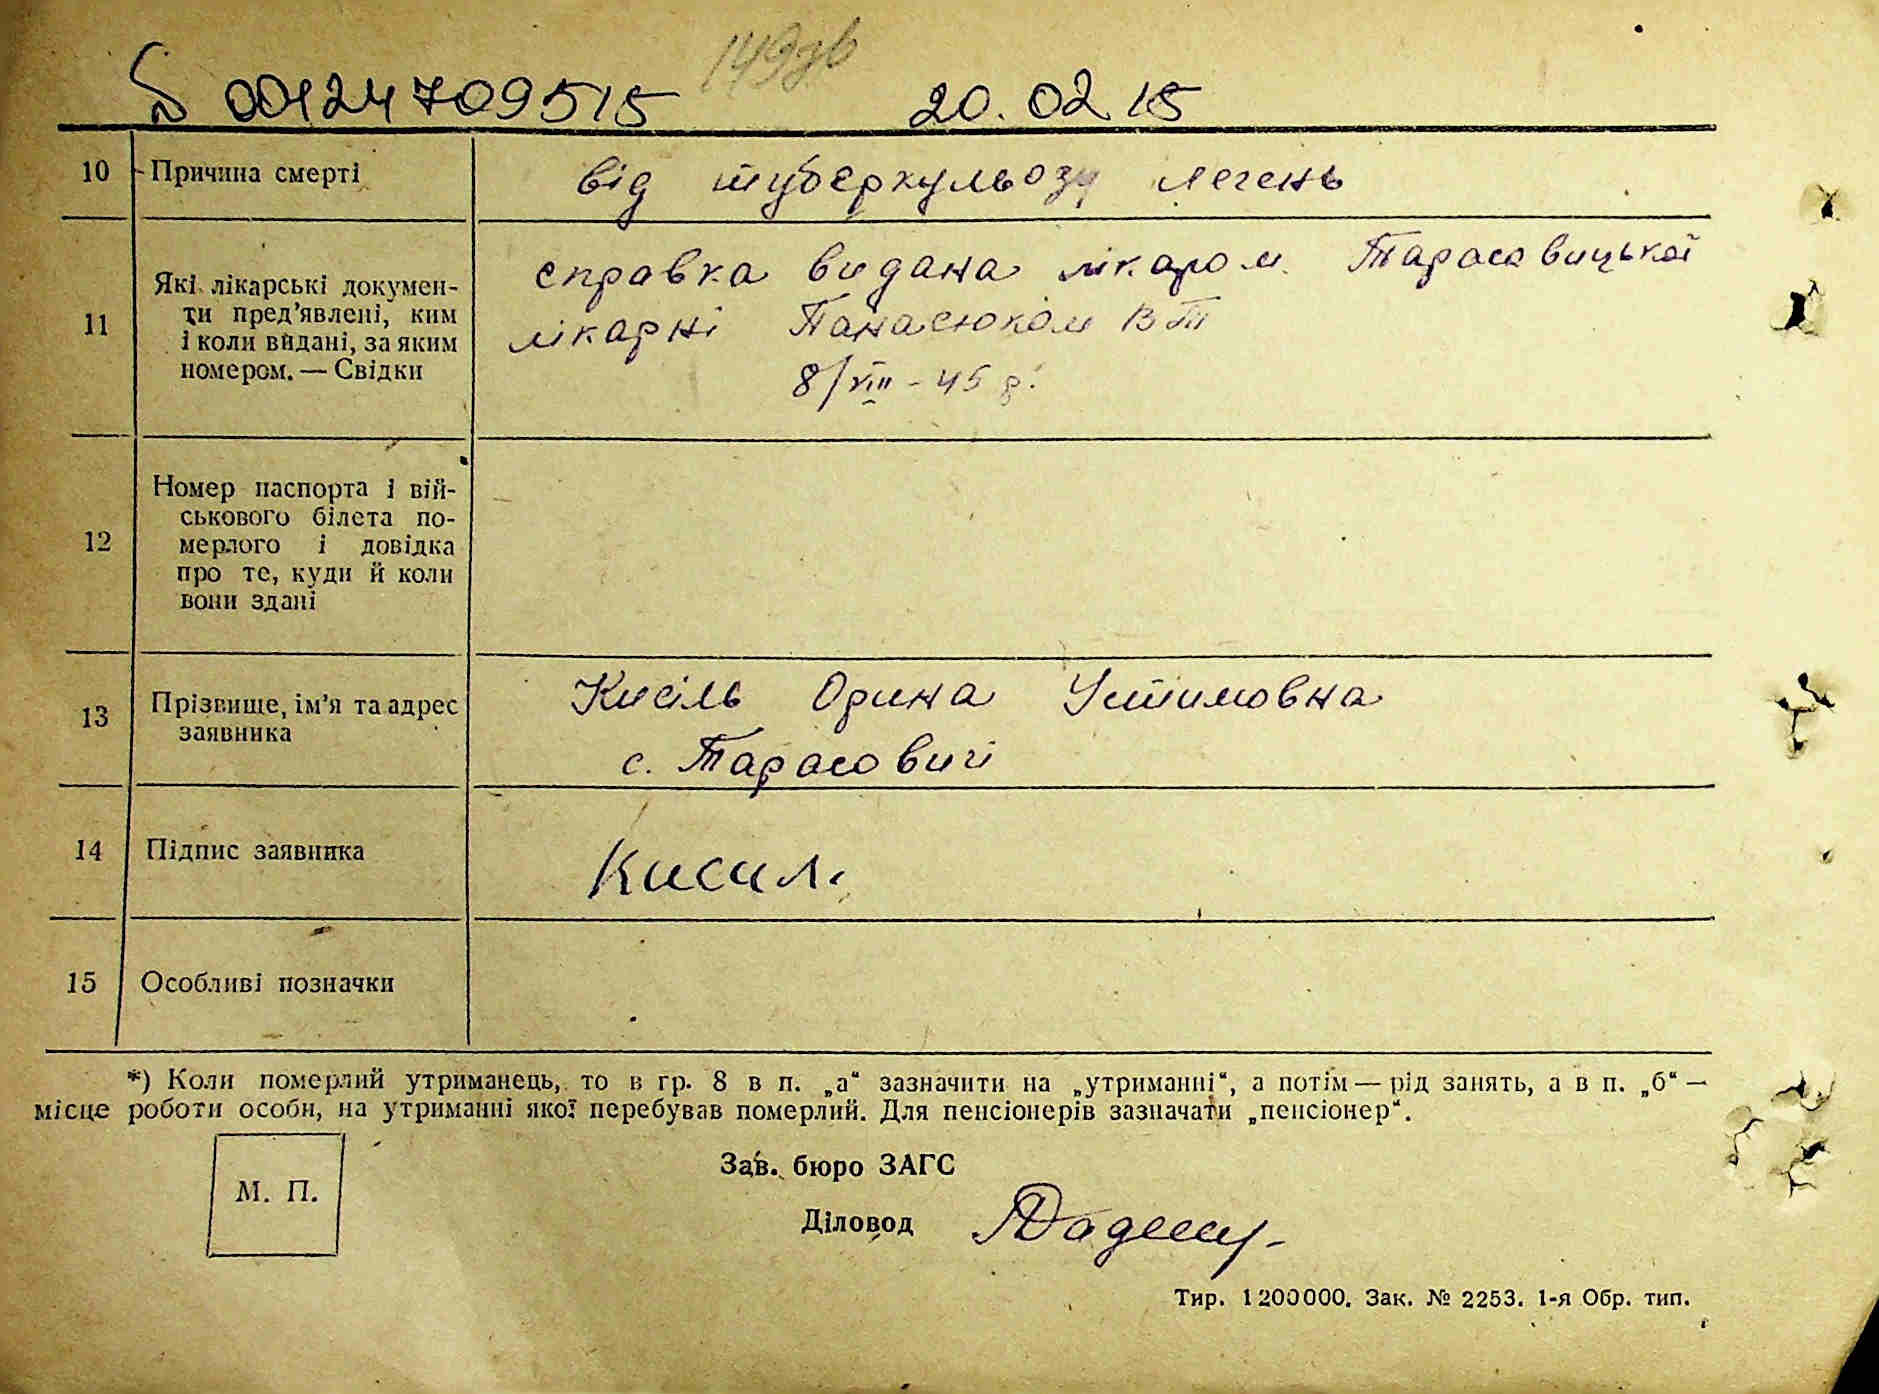 149зв
S 00124709515 20.02 15
10 Причина смерті від туберкульозу легень
11 Які лікарські докумен-
ти пред'явлені, ким
і коли видані, за яким
номером. — Свідки
справка видана лікаром Тарасовицької
лікарні Панасюком В П
8/VIII - 45 р.
12 Номер паспорта і вій-
ськового білета по-
мерлого і довідка
про те, куди й коли
вони здані
13 Прізвище, ім'я та адрес
заявника
Кисіль Орина Устимовна
с. Тарасовичі
14 Підпис заявника Кисил.
15 Особливі позначки
*) Коли померлий утриманець, то в гр. 8 в п. „а“ зазначити на „утриманні“, а потім — рід занять, а в п. „б“ —
місце роботи особи, на утриманні якої перебував померлий. Для пенсіонерів зазначати „пенсіонер“.
М. П.
Зав. бюро ЗАГС
Діловод
Тир. 1200000. Зак. № 2253. 1-я Обр. тип.